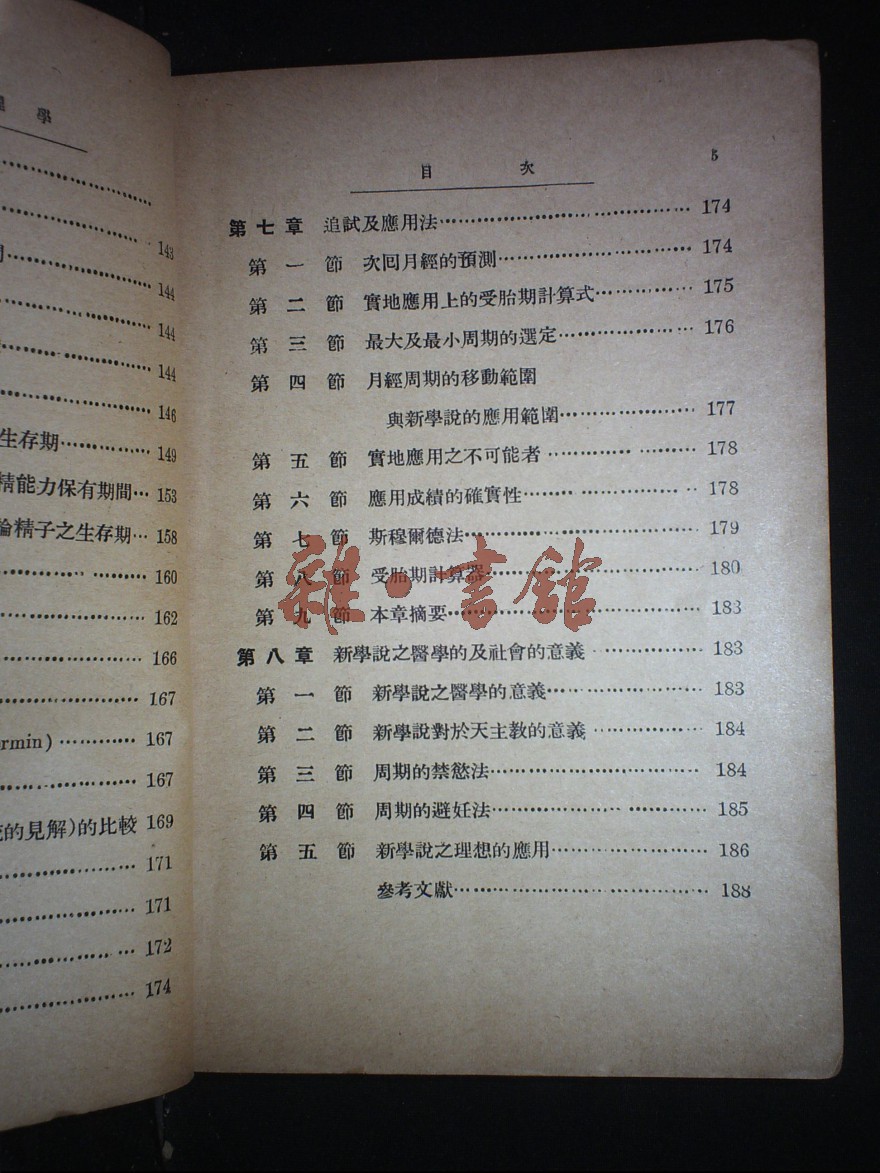 學
143
144
144
144
146
生存期………… 149
精能力保有期間… 153
論精子之生存期… 158
160
162
166
167
rmin)………… 167
167
的見解)的比較 169
171
171
172
174
目 次 5
第七章 追試及應用法………………………… 174
第一節 次回月經的預測………………… 174
第二節 實地應用上的受胎期計算式………… 175
第三節 最大及最小周期的選定…………… 176
第四節 月經周期的移動範圍
與新學說的應用範圍…………… 177
第五節 實地應用之不可能者……………… 178
第六節 應用成績的確實性………………… 178
第七節 斯穆爾德法……………………… 179
第八節 受胎期計算器…………………… 180
第九節 本章摘要………………………… 183
第八章 新學說之醫學的及社會的意義………… 183
第一節 新學說之醫學的意義……………… 183
第二節 新學說對於天主教的意義………… 184
第三節 周期的禁慾法…………………… 184
第四節 周期的避妊法…………………… 185
第五節 新學說之理想的應用……………… 186
參考文獻………………………… 188
雜·書館